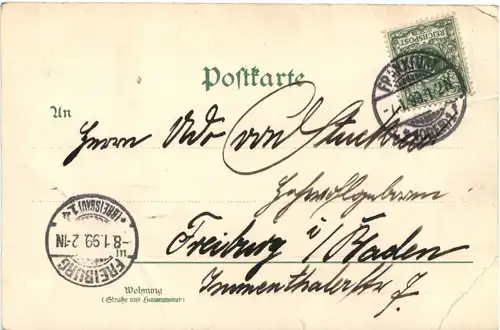 REICHSPOST
FRANKFURT
-7.1.99. 1-2N
Postkarte
An
Herrn Udo von
Hochwohlgeboren
Freiburg i/Baden
Immenthalerstr 7.
FREIBURG
-8.1.99. 2-1N
(BREISGAU) 1
Wohnung
(Straße und Hausnummer)